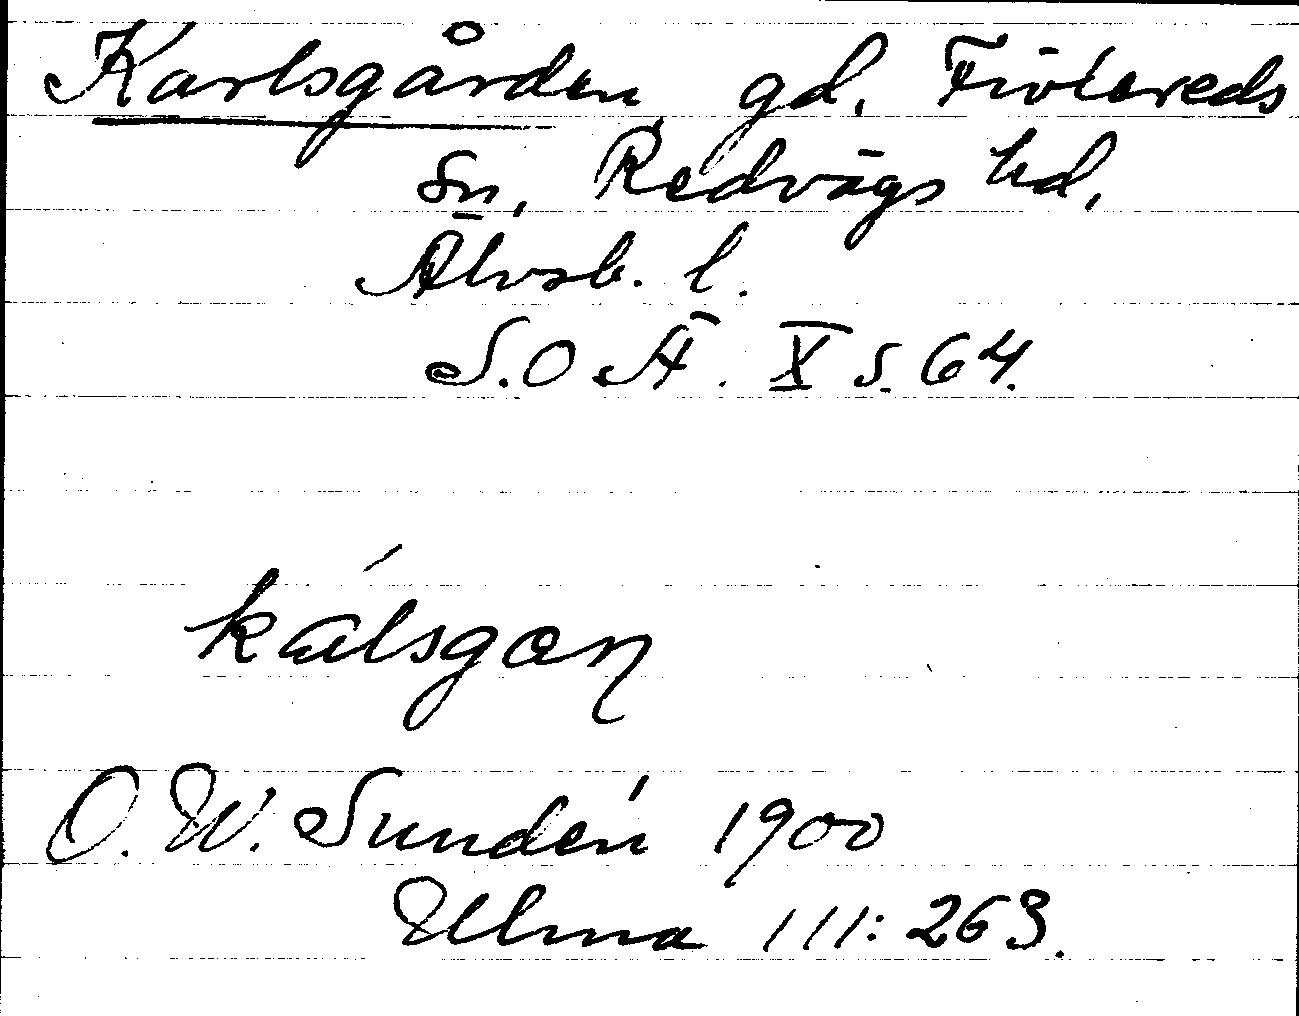 Karlsgården, gd. Fivlereds
sn, Redvägs hd,
Älvsb. l.
S.O.Ä. X s. 64.
kálsgan
O. W. Sundén 1900
Ulma 111: 263.